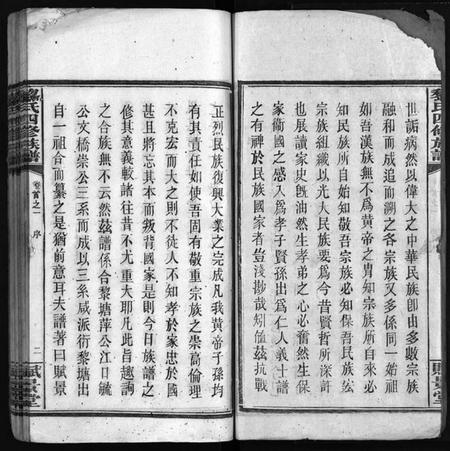 黎氏四修族譜
賦景堂
世詬病然以偉大之中華民族卽由多數宗族
融和而成追而溯之各宗族又多係同一始祖
如吾漢族無不爲黃帝之胄知宗族所自來必
知民族所自始知敬吾宗族必知保吾民族玆
宗族組織以光大民族要爲今昔賢哲所深許
也展讀家史旣油然生孝弟之心必奮然生保
家衞國之感入爲孝子賢孫出爲仁人義士譜
之有裨於民族國家者豈淺尠哉矧値玆抗戰
正烈民族復興大業之完成凡我黃帝子孫均
有其責任如使吾固有敬重宗族之崇高倫理
不克宏而大之則不徒人不知孝於家忠於國
甚且將忘其本而叛背國家是則今日族譜之
修其意義較諸往昔不尤重大耶凡此旨趣詢
之合族無不云然玆譜係合黎塘萍公江口毓
公文橋崇公三系而成以三系咸派衍黎塘出
自一祖合而纂之是猶前意耳夫譜著曰賦景
黎氏四修族譜
卷首之一
序
二
賦景堂